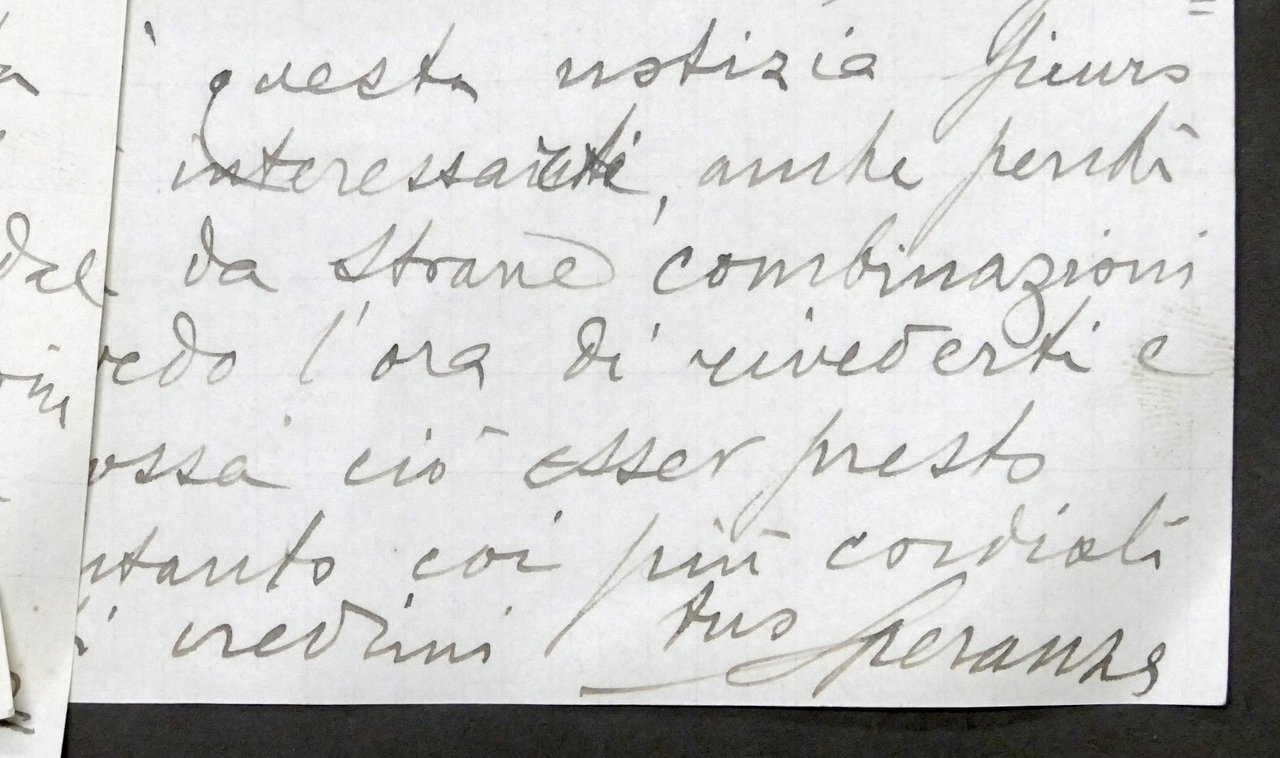 questa notizia
interessanti, anche perchè
da strane combinazioni
vedo l'ora di rivederti e
ossa ciò esser presto
ntanto coi più cordiali
i credimi tuo Speranza